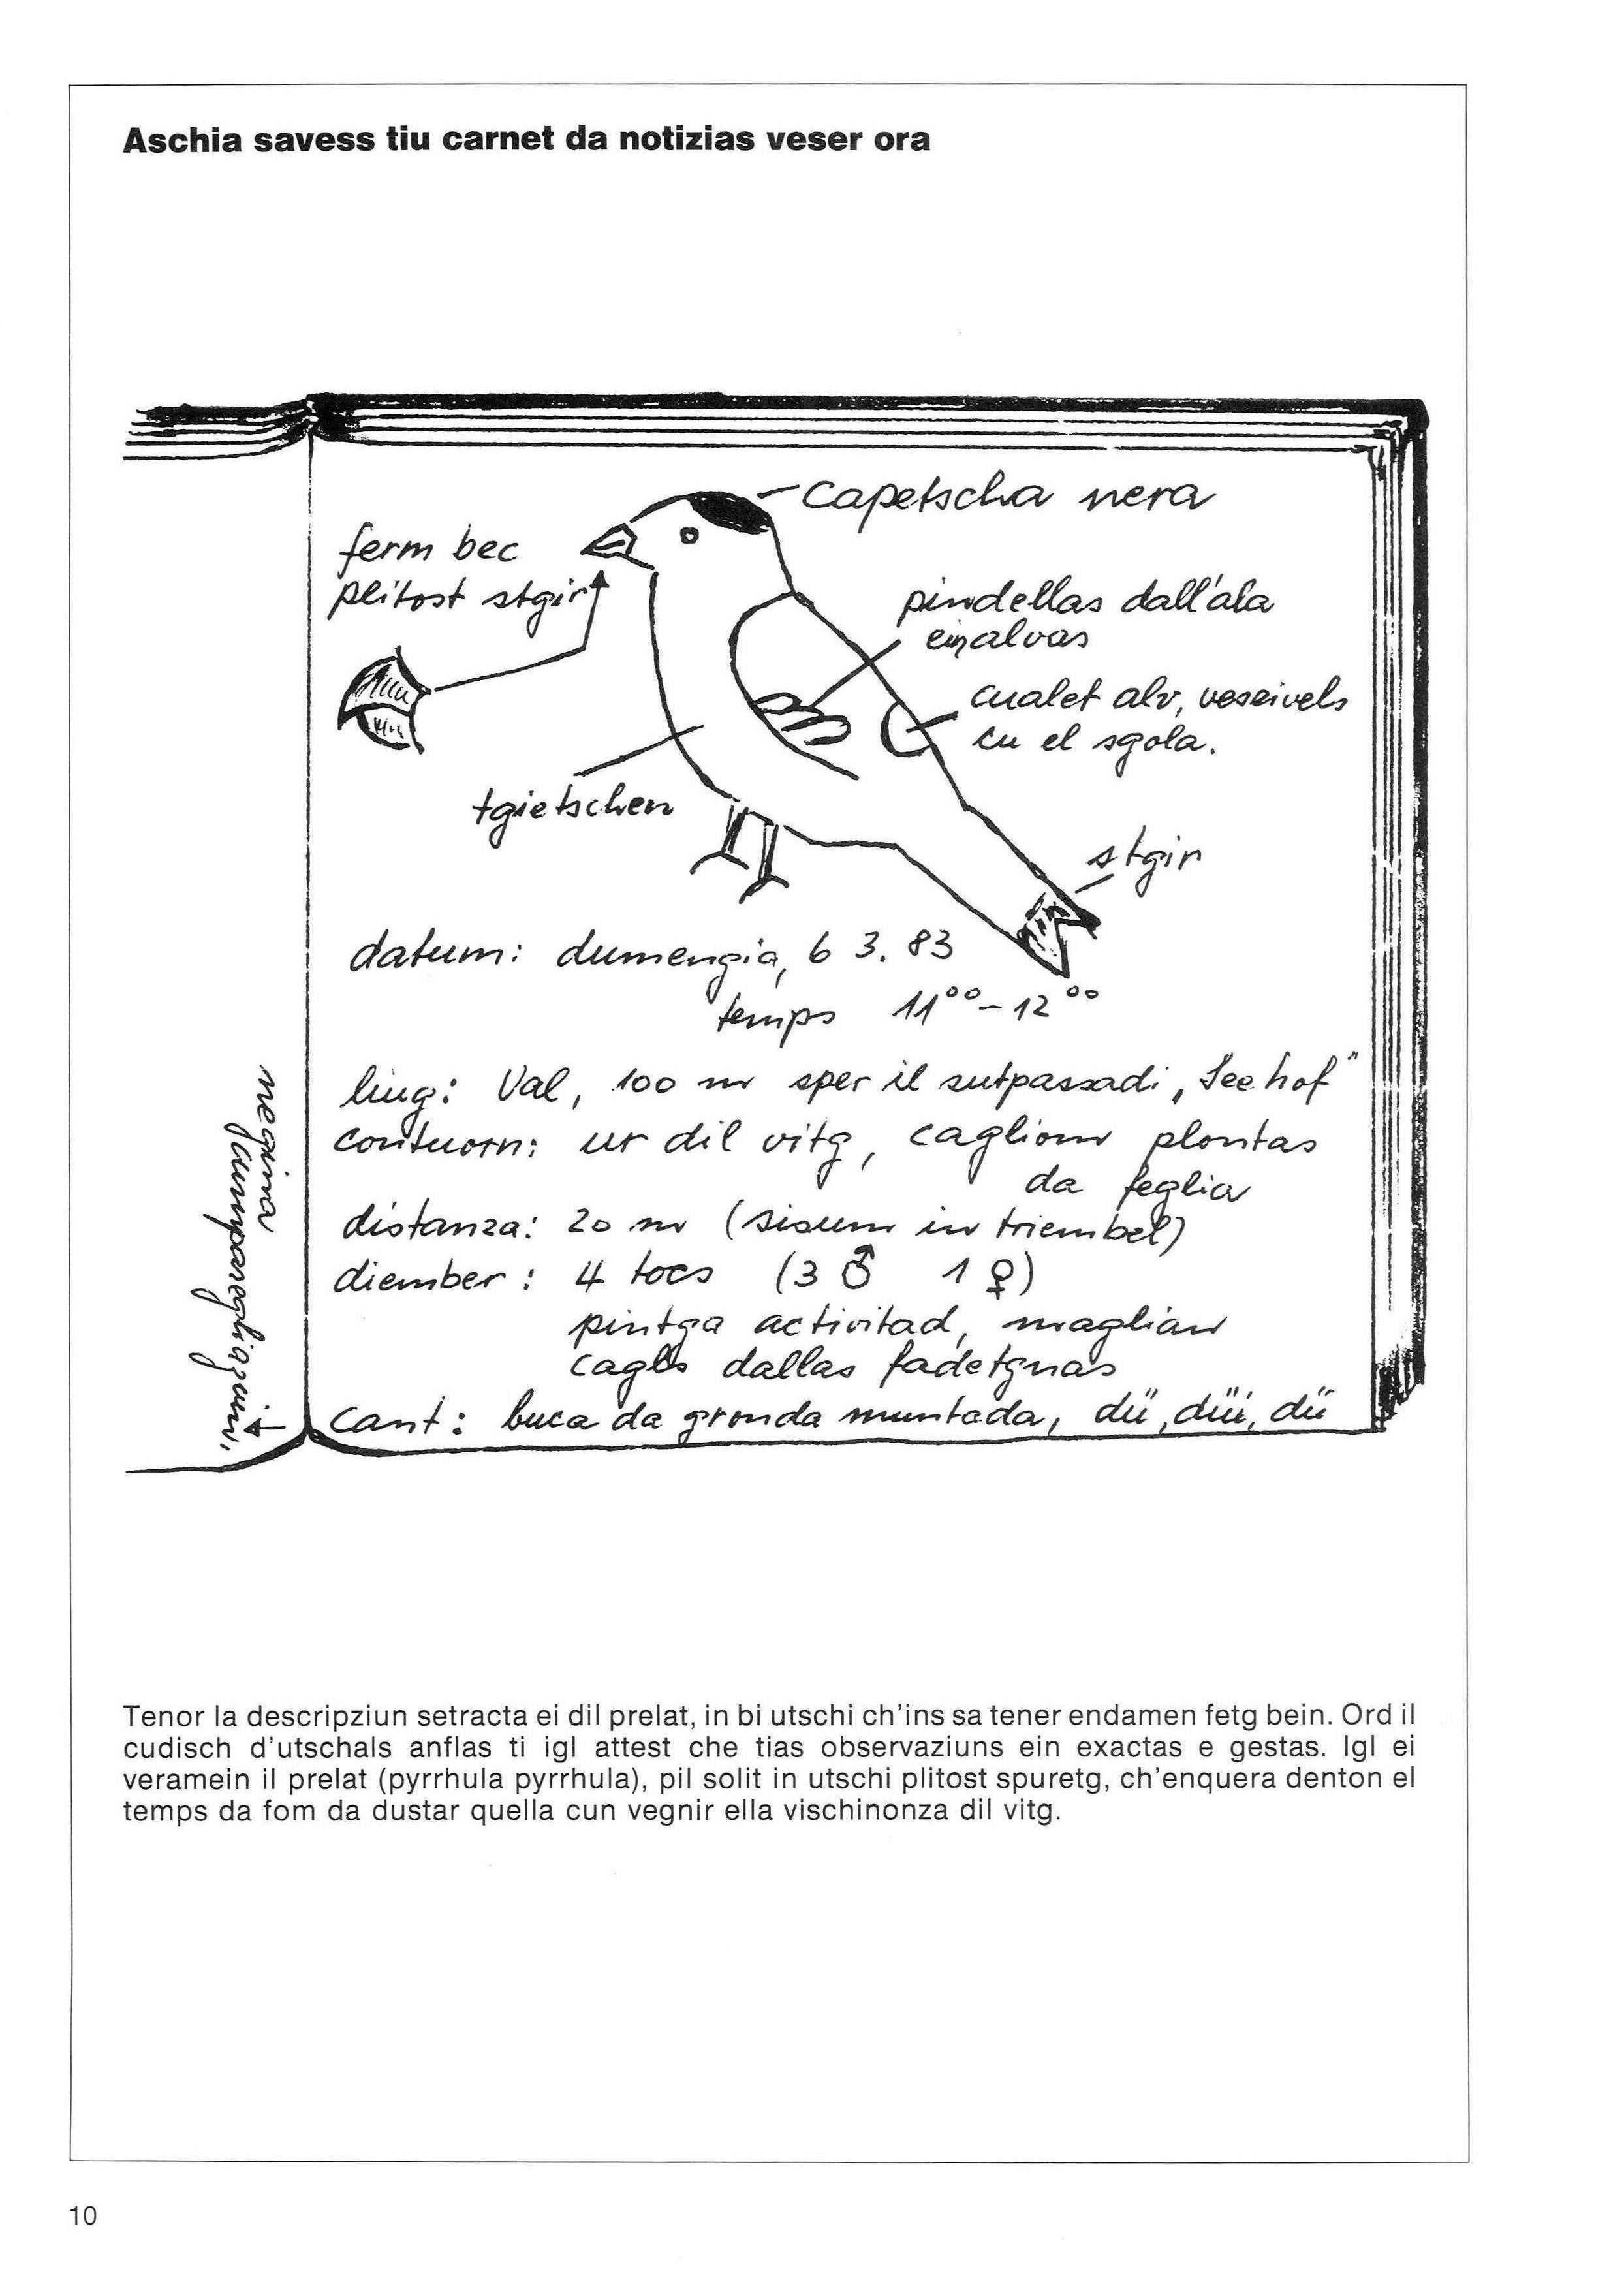 Aschia savess tiu carnet da notizias veser ora
capetscha nera
ferm bec
plitost stgir
pindellas dall'ala
einalvas
cualet alv, veseivels
cu el sgola.
tgietschen
stgir
datum: dumengia, 6 3. 83
temps 11⁰⁰ - 12⁰⁰
liug: Val, 100 m sper il sutpassadi „Seehof"
contuorn: ur dil vitg, caglioms plontas
da feglia
distanza: 20 m (sisum in triembel)
diember: 4 tocs (3 ♂ 1 ♀)
pintga activitad, maglian
cagls dallas fadetgnas
cant: buca da gronda muntada, dü, düü, dü
negina
cumparegliaziun,
Tenor la descripziun setracta ei dil prelat, in bi utschi ch'ins sa tener endamen fetg bein. Ord il
cudisch d'utschals anflas ti igl attest che tias observaziuns ein exactas e gestas. Igl ei
veramein il prelat (pyrrhula pyrrhula), pil solit in utschi plitost spuretg, ch'enquera denton el
temps da fom da dustar quella cun vegnir ella vischinonza dil vitg.
10